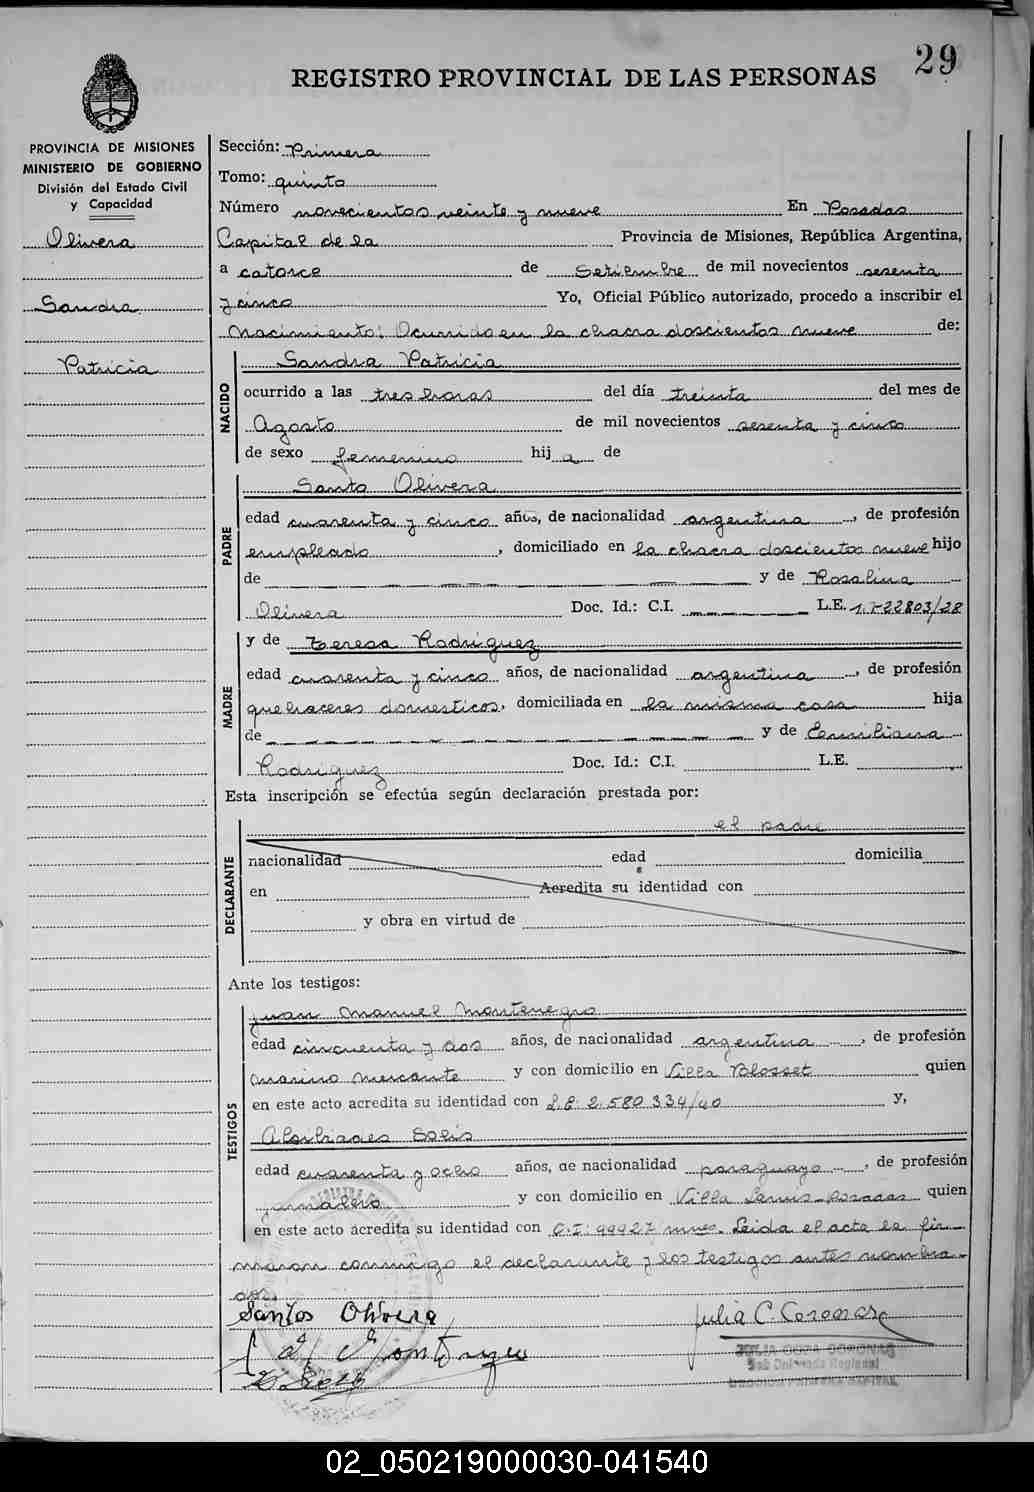 29
REGISTRO PROVINCIAL DE LAS PERSONAS
PROVINCIA DE MISIONES
MINISTERIO DE GOBIERNO
División del Estado Civil
y Capacidad
Olivera
Sandra
Patricia
Sección: Primera
Tomo: quinto
Número novecientos veinte y nueve En Posadas
Capital de la Provincia de Misiones, República Argentina,
a catorce de Setiembre de mil novecientos sesenta
y cinco Yo, Oficial Público autorizado, procedo a inscribir el
Nacimiento: Ocurrido en la chacra doscientos nueve de:
NACIDO
Sandra Patricia
ocurrido a las tres horas del día treinta del mes de
Agosto de mil novecientos sesenta y cinco
de sexo femenino hija de
PADRE
Santo Olivera
edad cuarenta y cinco años, de nacionalidad argentina, de profesión
empleado, domiciliado en la chacra doscientos nueve hijo
de y de Rosalina
Olivera Doc. Id.: C.I. L.E. 1.722803/28
MADRE
y de Teresa Rodriguez
edad cuarenta y cinco años, de nacionalidad argentina, de profesión
quehaceres domesticos, domiciliada en la misma casa hija
de y de Emiliana
Rodriguez Doc. Id.: C.I. L.E.
Esta inscripción se efectúa según declaración prestada por:
el padre
DECLARANTE
nacionalidad edad domicilia
en Acredita su identidad con
y obra en virtud de
Ante los testigos:
TESTIGOS
Juan Manuel Montenegro
edad cincuenta y dos años, de nacionalidad argentina, de profesión
Marino mercante y con domicilio en Villa Blosset quien
en este acto acredita su identidad con L.E. 2.580.334/40 y,
Alcibiades Solis
edad cuarenta y ocho años, de nacionalidad paraguayo, de profesión
jornalero y con domicilio en Villa Lanus-Posadas quien
en este acto acredita su identidad con C.I. 99927 mnes. Leida el acta la fir-
maron conmigo el declarante y los testigos antes nombra-
dos.
Santos Olivera
Julia C. Coronas
JULIA COSTA CORONAS
Sub Delegada Regional
SECCION PRIMERA CAPITAL
02_050219000030-041540